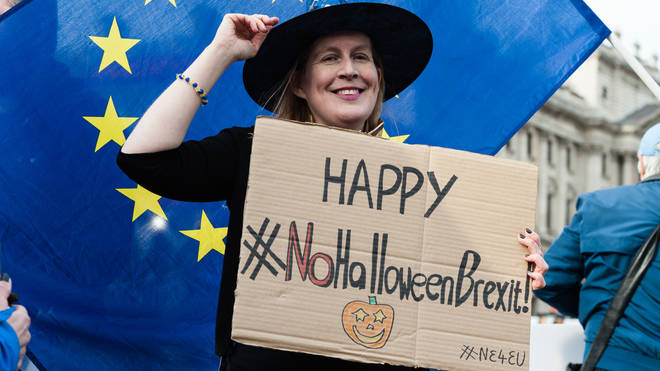 HAPPY
#NoHalloweenBrexit!
#NE4EU